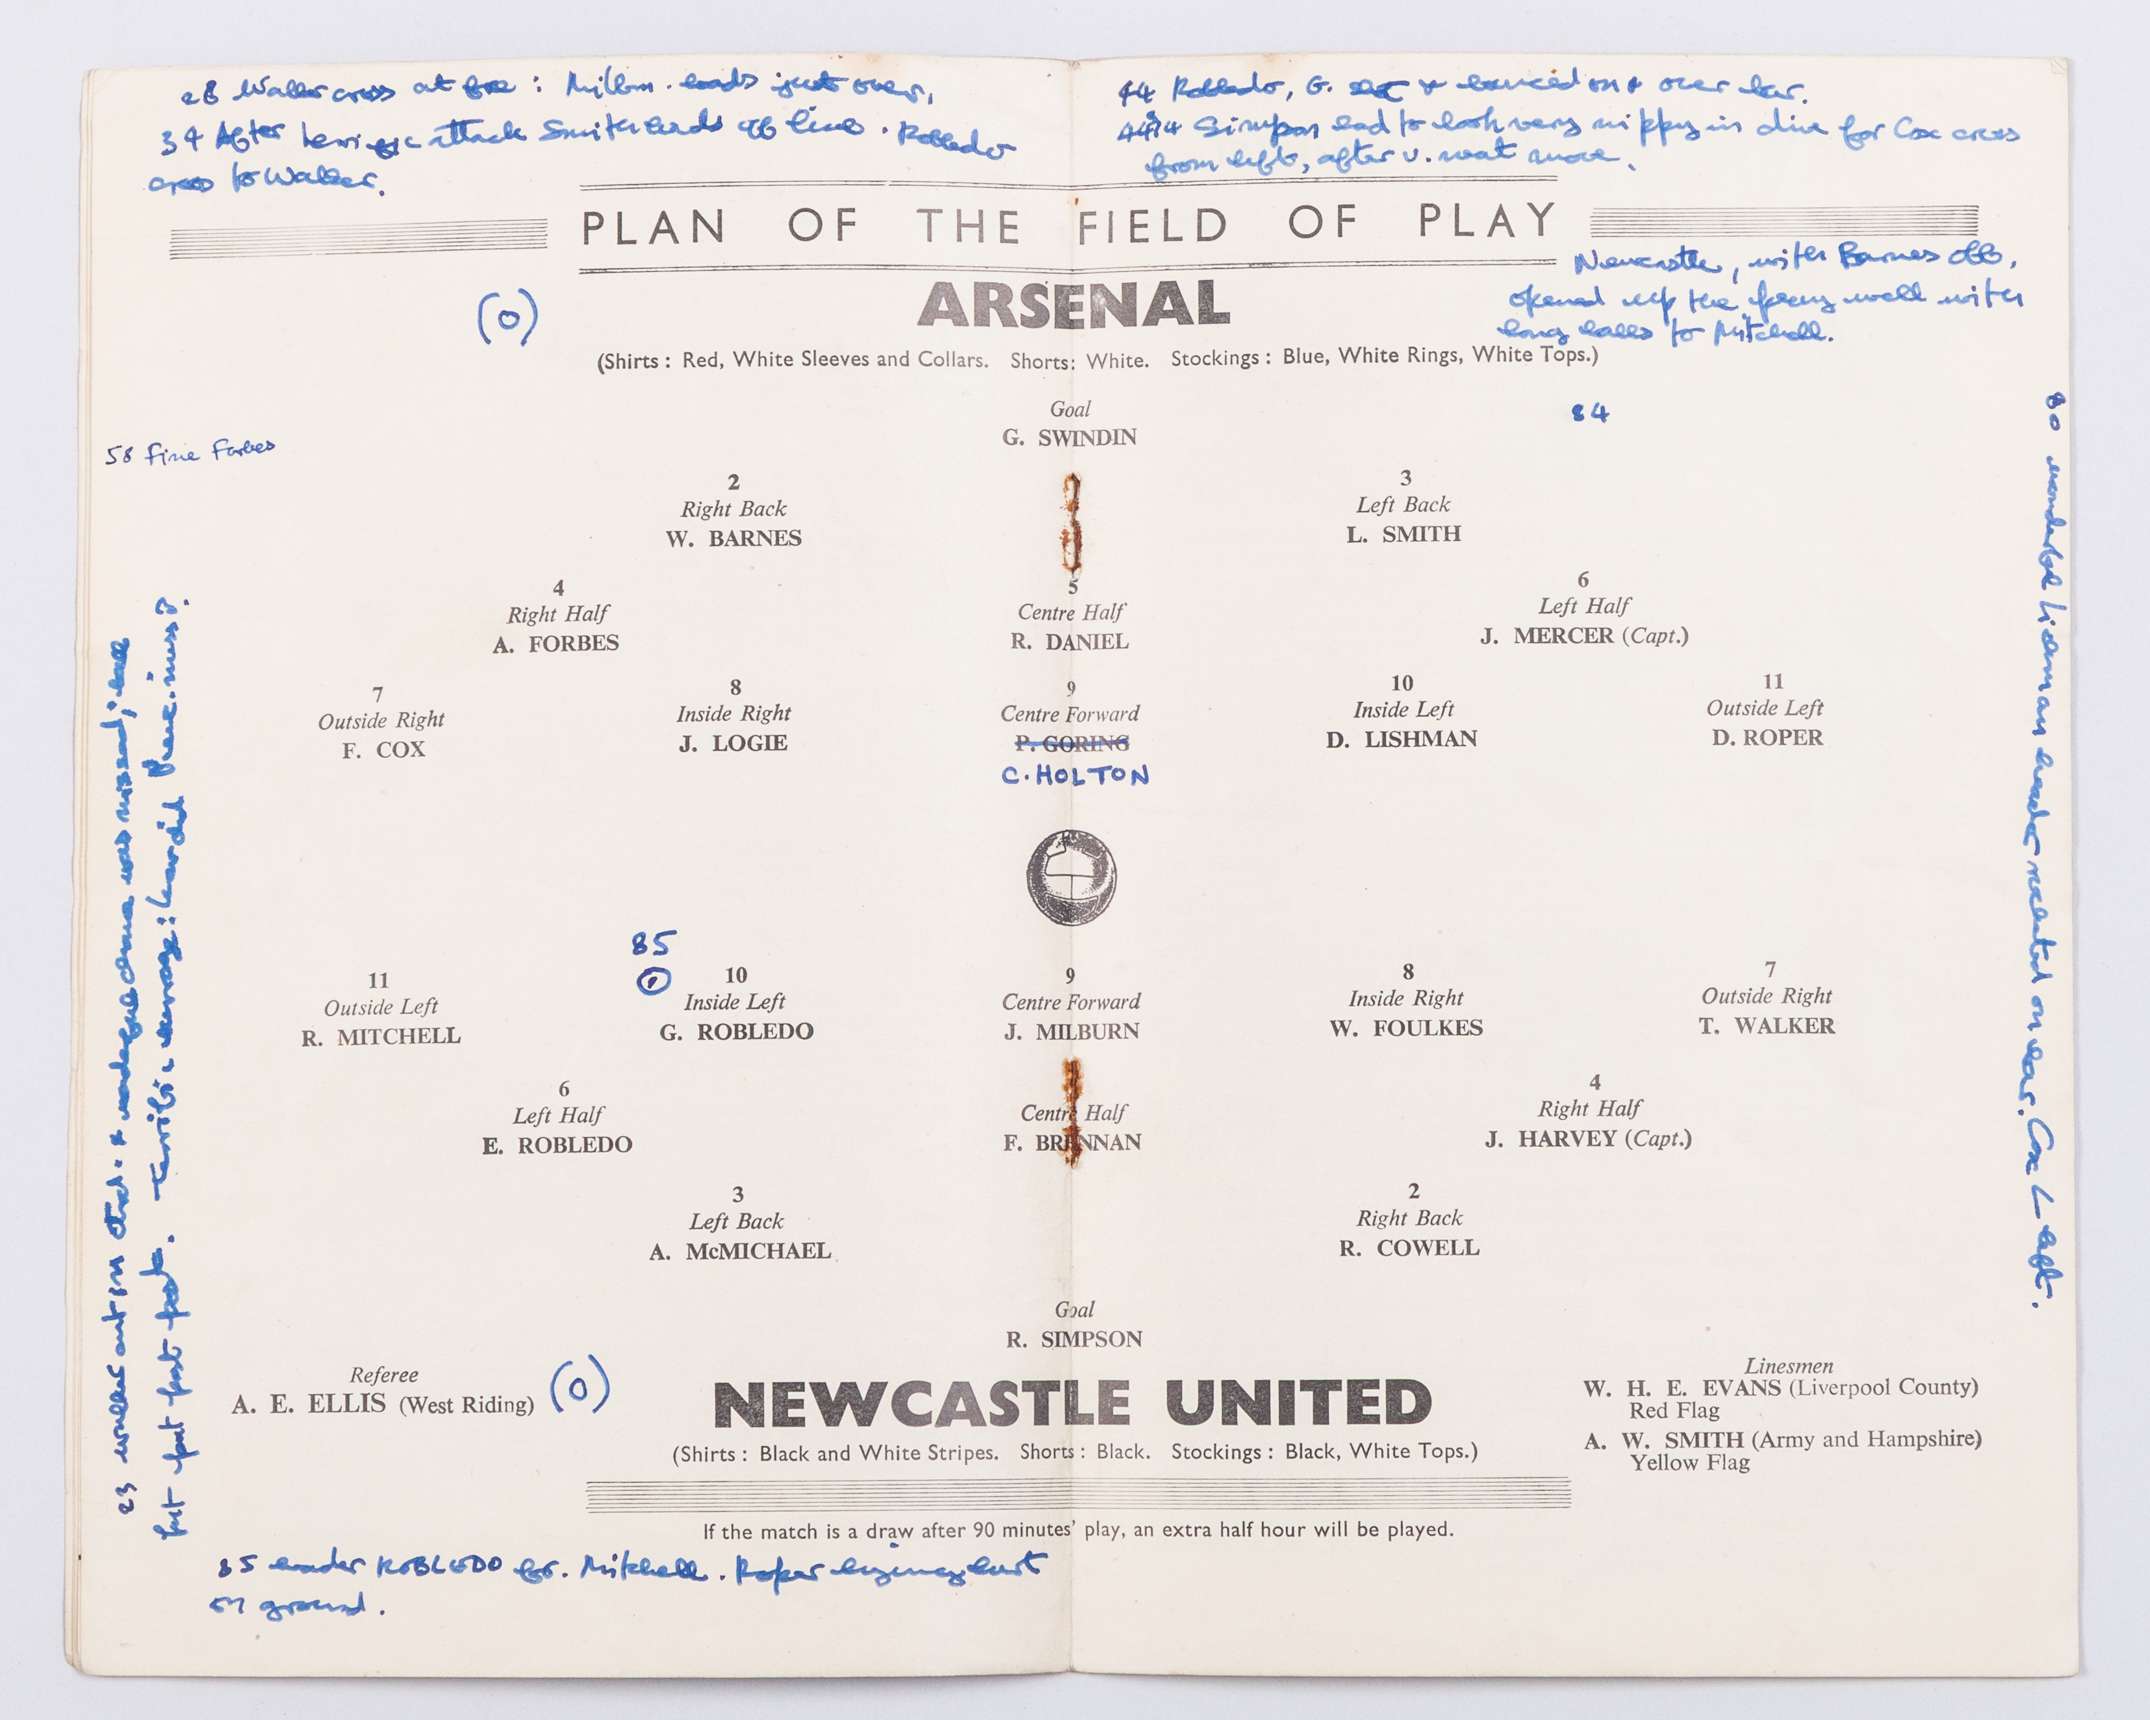 28 Walker cross at : Milbn. heads just over,
34 After attack Smith heads off line. Robledo
cross to Walker.
44 Robledo, G. & bounced on & over bar.
44 Simpson had to look very nippy in dive for Cox cross
from left, after v. neat move.
PLAN OF THE FIELD OF PLAY
Newcastle, with Barnes off,
opened up the well with
long balls to Mitchell.
(0)
ARSENAL
(Shirts : Red, White Sleeves and Collars. Shorts: White. Stockings : Blue, White Rings, White Tops.)
Goal
G. SWINDIN
84
58 fine Forbes
2
Right Back
W. BARNES
3
Left Back
L. SMITH
4
Right Half
A. FORBES
5
Centre Half
R. DANIEL
6
Left Half
J. MERCER (Capt.)
7
Outside Right
F. COX
8
Inside Right
J. LOGIE
9
Centre Forward
P. GORING
C. HOLTON
10
Inside Left
D. LISHMAN
11
Outside Left
D. ROPER
85
1
11
Outside Left
R. MITCHELL
10
Inside Left
G. ROBLEDO
9
Centre Forward
J. MILBURN
8
Inside Right
W. FOULKES
7
Outside Right
T. WALKER
6
Left Half
E. ROBLEDO
Centre Half
F. BRENNAN
4
Right Half
J. HARVEY (Capt.)
3
Left Back
A. McMICHAEL
2
Right Back
R. COWELL
Goal
R. SIMPSON
Referee
A. E. ELLIS (West Riding)
(0)
NEWCASTLE UNITED
(Shirts : Black and White Stripes. Shorts : Black. Stockings : Black, White Tops.)
Linesmen
W. H. E. EVANS (Liverpool County)
Red Flag
A. W. SMITH (Army and Hampshire)
Yellow Flag
If the match is a draw after 90 minutes' play, an extra half hour will be played.
85 header ROBLEDO fr. Mitchell. Roper lying hurt
on ground.
23 was missed; ball
just past post.
80 wonderful Lishman header rocketed on bar. Cox L left.